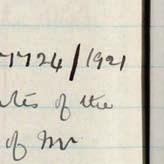 1724/1921
of the
of Mr